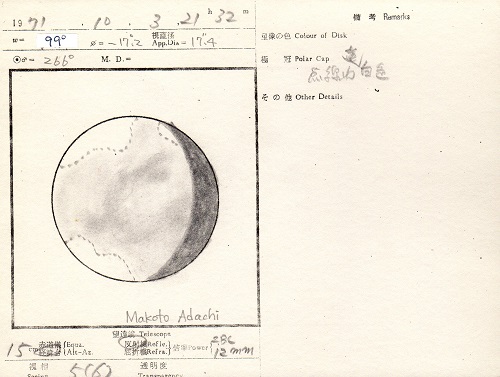 1971 . 10 . 3 . 21 h 32 m
ω= 99° φ= -17°.2 視直径 App.Dia= 17".4
⊙♂= 266° M. D.=
Makoto Adachi
望遠鏡 Telescope
15 cm 赤道儀 (Equa. 反射機 Refle.) 倍率 Power
経緯台 (Alt-Az. 屈折機 Refra.) 12 mm
透明度
Seeing 5(6) Transparency
備考 Remarks
星像の色 Colour of Disk
極 冠 Polar Cap
点線内 白色
その他 Other Details